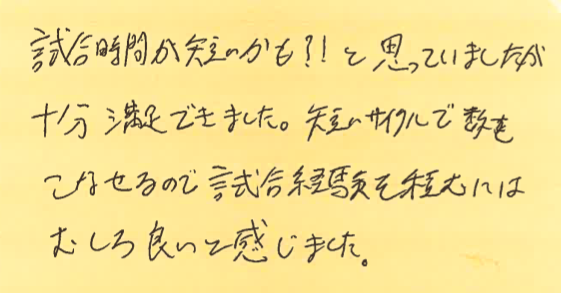 試合時間が短いかも?! と思っていましたが
十分満足できました。短いサイクルで数を
こなせるので試合経験を積むには
むしろ良いと感じました。